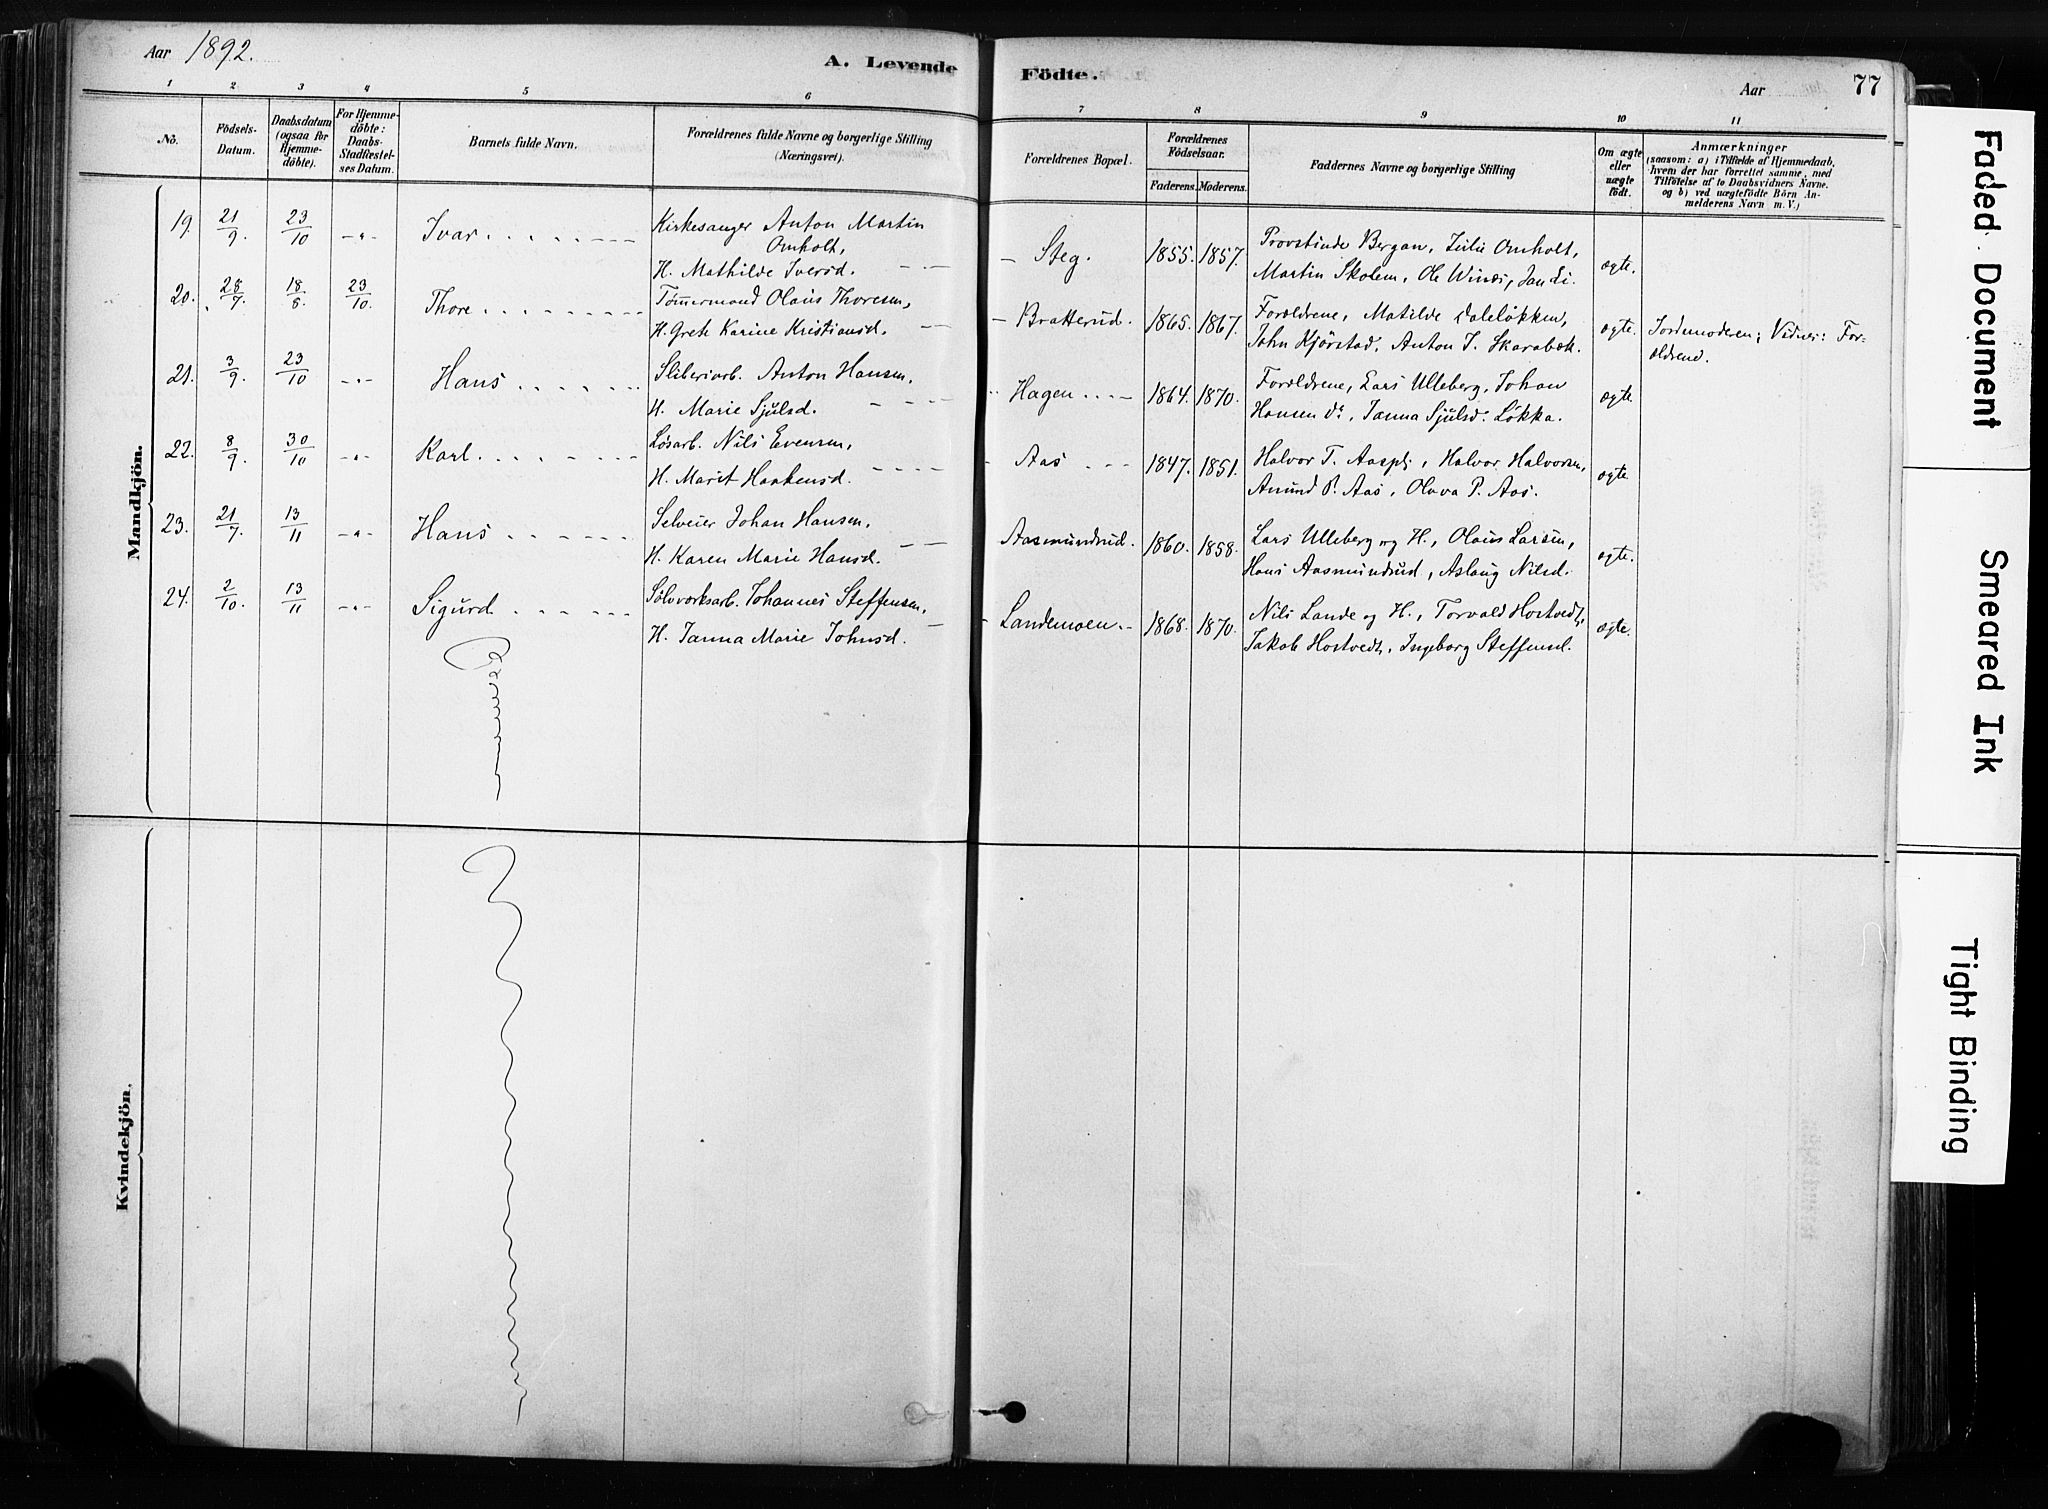 Aar 1892.
A. Levende Födte.
Aar
77
1 2 3 4 5 6 7 8 9 10 11
No.
Födsels-
Datum.
Daabsdatum
(ogsaa for
Hjemme-
döbte).
For Hjemme-
döbte:
Daabs-
Stadfæstel-
ses Datum.
Barnets fulde Navn.
Forældrenes fulde Navne og borgerlige Stilling
(Næringsvei).
Forældrenes Bopæl.
Forældrenes
Födselsaar.
Faderens. Moderens.
Faddernes Navne og borgerlige Stilling
Om ægte
eller
uægte
födt.
Anmærkninger
(saasom: a) i Tilfælde af Hjemmedaab,
hvem der har forrettet samme, med
Tilföielse af to Daabsvidners Navne,
og b) ved uægtefödte Börn An-
melderens Navn m. V.)
Mandkjön.
19. 21/9. 23/10 -"- Ivar
Kirkesanger Anton Martin
Omholt,
H. Mathilde Iversd.
Steg. 1855. 1857.
Provstinde Bergan, Julie Omholt,
Martin Skolem, Ole Jan Li.
ægte.
20. 28/7. 18/8. 23/10. Thore
Tømmermand Olaus Thoresen,
H. Grete Karine Kristiansd.
Bratterud. 1865. 1867.
Forældrene, Matilde Daleløkken,
John Kjørstad, Anton J. Skarabæk.
ægte.
Jordemoderen; Vidner: For-
ældrene.
21. 3/9. 23/10 -"- Hans
Sliberiarb. Anton Hansen,
H. Marie Sjulsd.
Hagen 1864. 1870.
Forældrene, Lars Ulleberg, Johan
Hansen do, Janna Sjulsd. Løkka.
ægte.
22. 8/9. 30/10 -"- Karl.
Løsarb. Nils Evensen,
H. Marit Haakensd.
Aas 1847. 1851.
Halvor T. Aaspl., Halvor Halvorsen,
Amund P. Aas, Olava P. Aas.
ægte.
23. 21/7. 13/11 -"- Hans
Selveier Johan Hansen,
H. Karen Marie Hansd.
Aasmundrud. 1860. 1858.
Lars Ulleberg og H., Olaus Larsen,
Hans Aasmundrud, Aslaug Nilsd.
ægte.
24. 2/10. 13/11 -"- Sigurd
Sølvværksarb. Johannes Steffensen,
H. Janna Marie Johnsd.
Landemoen. 1868. 1870.
Nils Lande og H., Torvald Hostvedt,
Jakob Hostvedt, Ingeborg Steffensd.
ægte.
Kvindekjön.
Faded Document
Smeared Ink
Tight Binding